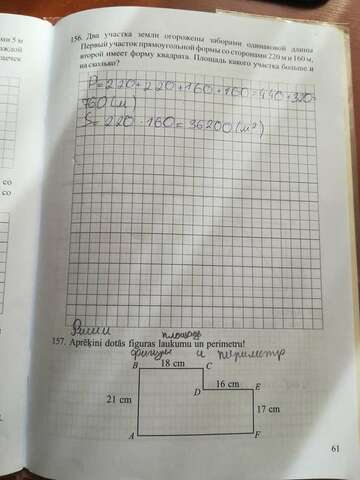 156. Два участка земли огорожены заборами одинаковой длины
Первый участок прямоугольной формы со сторонами 220 м и 160 м,
второй имеет форму квадрата. Площадь какого участка больше и
на сколько?
P=220+220+160+160=440+320=
760(м)
S=220·160=36200(м²)
Реши
площадь
157. Aprēķini dotās figūras laukumu un perimetru!
фигуры и периметр
B 18 cm C
16 cm E
D
21 cm
17 cm
A F
61
ми 5 м
каждой
со
со